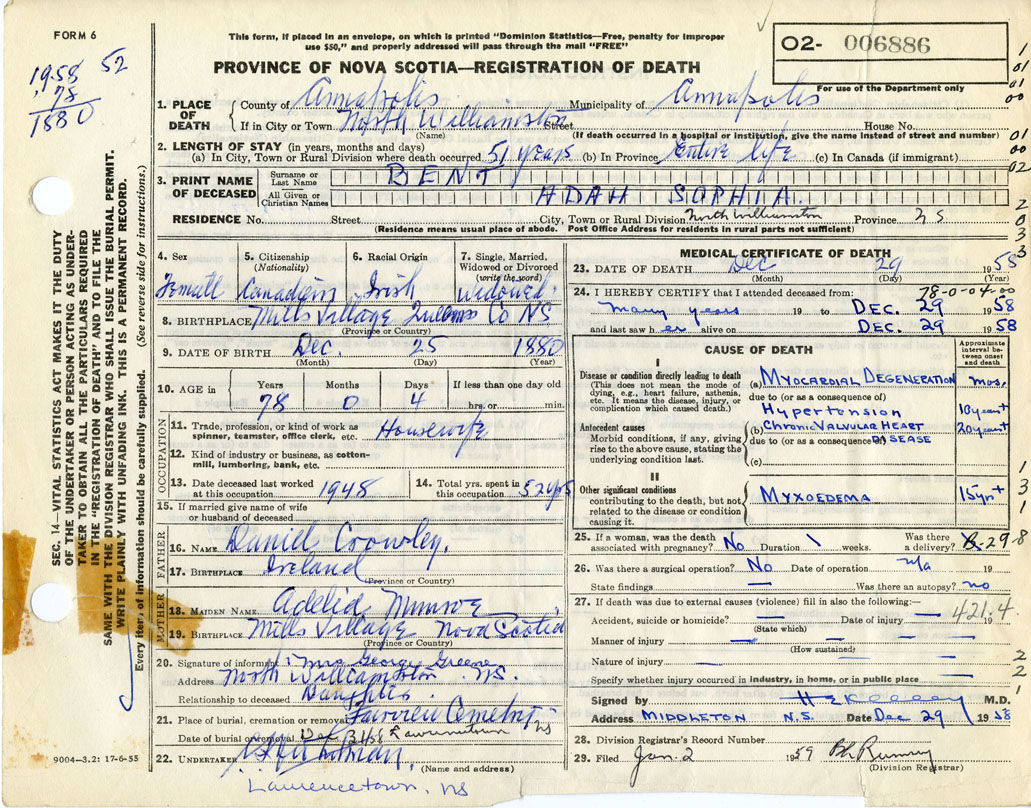 FORM 6
This form, if placed in an envelope, on which is printed "Dominion Statistics—Free, penalty for improper
use $50," and properly addressed will pass through the mail "FREE"
02- 006886
For use of the Department only
1958 52
78
1880
PROVINCE OF NOVA SCOTIA—REGISTRATION OF DEATH
1. PLACE OF DEATH { County of Annapolis Municipality of Annapolis
If in City or Town North Williamston Street House No.
(Name) (If death occurred in a hospital or institution, give the name instead of street and number)
2. LENGTH OF STAY (in years, months and days)
(a) In City, Town or Rural Division where death occurred 51 years (b) In Province Entire life (c) In Canada (if immigrant)
3. PRINT NAME OF DECEASED { Surname or Last Name BENT
All Given or Christian Names ADAH SOPHIA
RESIDENCE No. Street City, Town or Rural Division North Williamston Province NS
(Residence means usual place of abode. Post Office Address for residents in rural parts not sufficient)
SEC. 14—VITAL STATISTICS ACT MAKES IT THE DUTY
OF THE UNDERTAKER OR PERSON ACTING AS UNDER-
TAKER TO OBTAIN ALL THE PARTICULARS REQUIRED
IN THE "REGISTRATION OF DEATH" AND TO FILE THE
SAME WITH THE DIVISION REGISTRAR WHO SHALL ISSUE THE BURIAL PERMIT.
WRITE PLAINLY WITH UNFADING INK. THIS IS A PERMANENT RECORD.
Every item of information should be carefully supplied. (See reverse side for instructions.)
4. Sex 5. Citizenship (Nationality) 6. Racial Origin 7. Single, Married, Widowed or Divorced (write the word)
Female Canadian Irish Widowed
8. BIRTHPLACE Mills Village Queens Co NS
(Province or Country)
9. DATE OF BIRTH Dec. 25 1880
(Month) (Day) (Year)
10. AGE in Years Months Days If less than one day old
78 0 4 hrs. or min.
OCCUPATION
11. Trade, profession, or kind of work as spinner, teamster, office clerk, etc. Housewife
12. Kind of industry or business, as cotton-mill, lumbering, bank, etc.
13. Date deceased last worked at this occupation 1948 14. Total yrs. spent in this occupation 52 yrs
15. If married give name of wife or husband of deceased
FATHER
16. NAME Daniel Crowley.
17. BIRTHPLACE Ireland
(Province or Country)
MOTHER
18. MAIDEN NAME Munroe
19. BIRTHPLACE Mills Village Nova Scotia
(Province or Country)
20. Signature of informant Mrs George Greene
Address North Williamston NS.
Relationship to deceased Daughter.
21. Place of burial, cremation or removal Cemetery
Date of burial or removal Dec 31/58 Lawrencetown NS
22. UNDERTAKER
(Name and address)
Lawrencetown, NS
9004—3.2: 17-6-55
MEDICAL CERTIFICATE OF DEATH
23. DATE OF DEATH Dec 29 1958
(Month) (Day) (Year)
78-0-04-00
24. I HEREBY CERTIFY that I attended deceased from:
many years 19 to DEC. 29 1958
and last saw h er alive on DEC. 29 1958
CAUSE OF DEATH
Approximate interval between onset and death
I
Disease or condition directly leading to death
(This does not mean the mode of dying, e.g., heart failure, asthenia, etc. It means the disease, injury, or complication which caused death.)
(a) MYOCARDIAL DEGENERATION mos.
due to (or as a consequence of)
Hypertension 10 years+
Antecedent causes
Morbid conditions, if any, giving rise to the above cause, stating the underlying condition last.
(b) Chronic Valvular Heart 20 years+
due to (or as a consequence of) DISEASE
(c)
II
Other significant conditions
contributing to the death, but not related to the disease or condition causing it.
MYXOEDEMA 15 yr+
25. If a woman, was the death associated with pregnancy? No Duration \ weeks. Was there a delivery?
26. Was there a surgical operation? No Date of operation n/a 19
State findings — Was there an autopsy? no
27. If death was due to external causes (violence) fill in also the following:—
Accident, suicide or homicide? — Date of injury — 19
(State which)
421.4
Manner of injury
(How sustained)
Nature of injury
Specify whether injury occurred in industry, in home, or in public place
Signed by M.D.
Address MIDDLETON N.S. Date Dec 29 1958
28. Division Registrar's Record Number
29. Filed Jan. 2 1959
(Division Registrar)